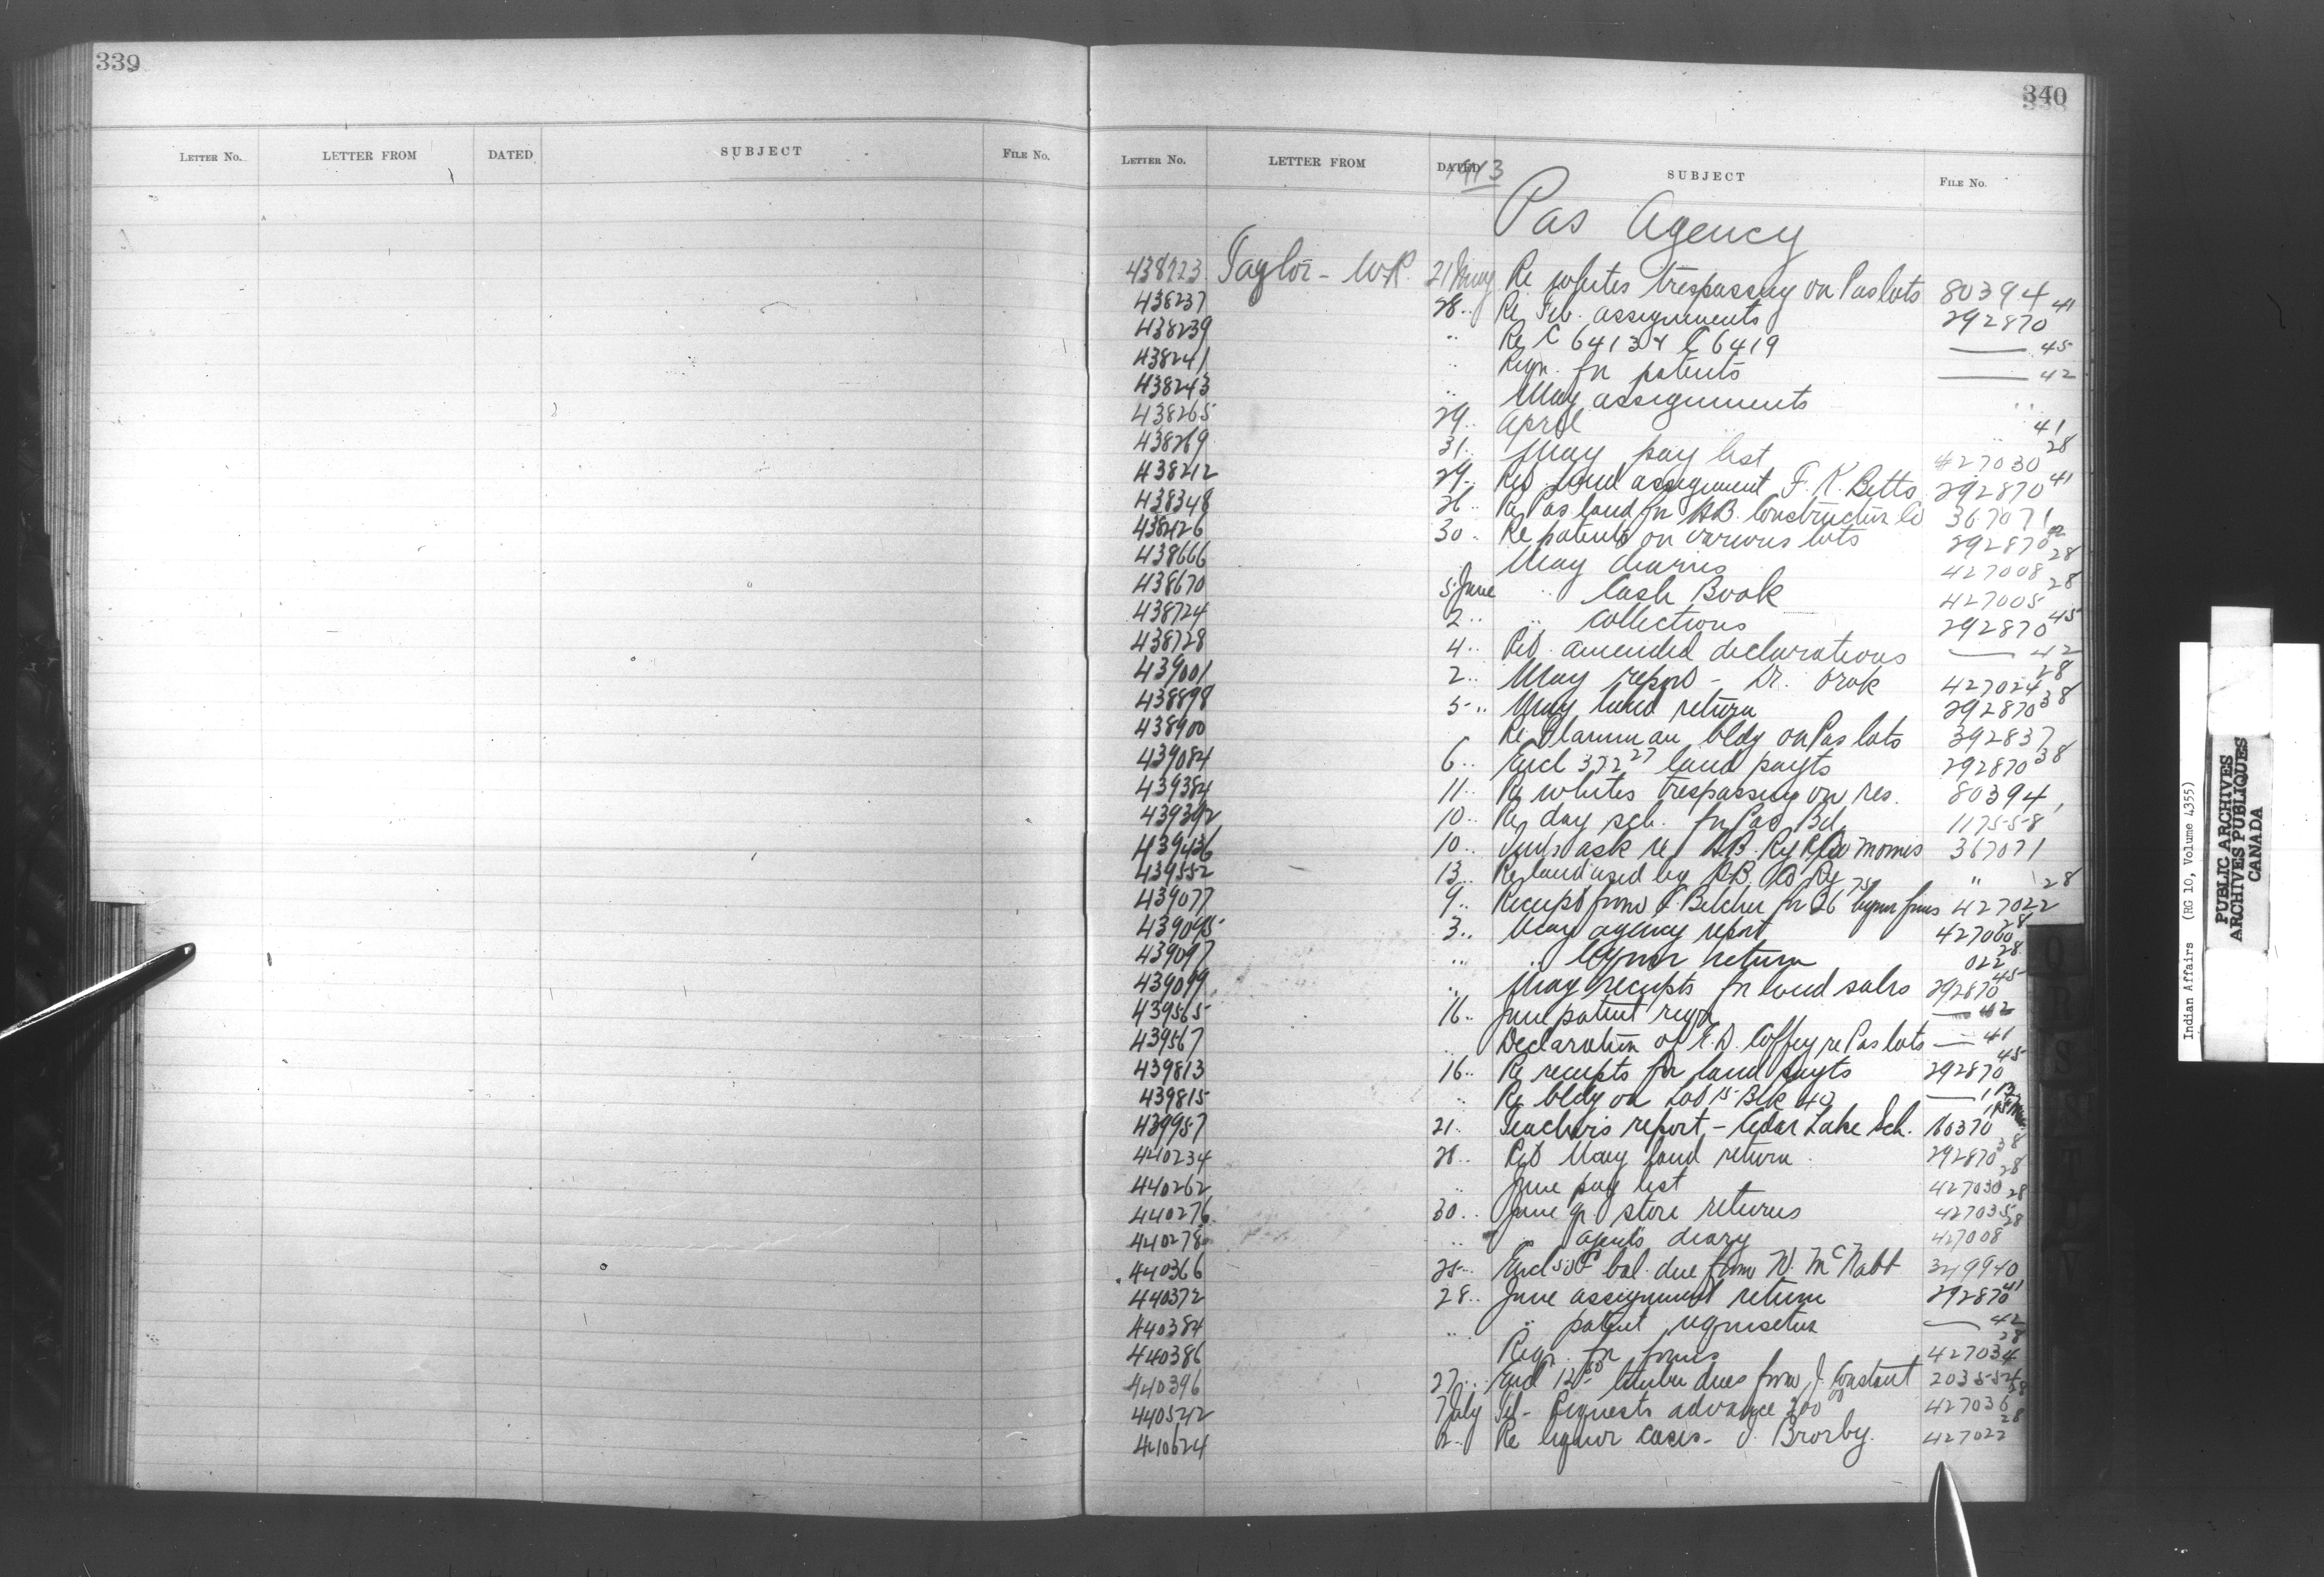 339
340
LETTER No. LETTER FROM DATED SUBJECT FILE No.
LETTER No. LETTER FROM DATED SUBJECT FILE No.
1913
Pas Agency
438223 Taylor - W.R. 21 May Re whites trespassing on Pas lots 80394
438237 28 .. Re Feb. assignments 292870 41
438239 .. Re C 6413 & C 6419 — 45
438241 .. Reqn. for patents — 42
438243 .. May assignments ..
438265 29 .. April 41
438269 31 .. May pay list 427030 28
438212 29 .. Ret. land assignment F. K. Betts 292870 41
438348 26 .. Re Pas land for H.B. Construction Co 367071
438426 30 . Re patents on various lots 292870 42
438666 May diaries 427008 28
438670 5 June .. Cash Book 427005 28
438724 2 .. .. Collections 292870 45
438728 4 .. Ret. amended declarations — 42
439001 2 .. May report - Dr. Orok 427024 28
438898 5 .. May land return 292870 38
438900 Re bldg on Pas lots 392837
439084 6 .. Encl 372 27 land payts 292870 38
439384 11 .. Re whites trespassing on res. 80394
439392 10 .. Re day sch. for Pas Bd. 117558
439436 10 .. ask re H.B. Ry 367071
439552 13 .. Re land used by H.B. Ry "
439077 9 .. Receipt from J. Belcher for 26 75 liquor fines 427022 28
439095 3 .. May agency report 427060 28
439097 ... .. liquor return 022 28
439099 .. May receipts for land sales 292870 45
439565 16 .. June patent reqn — 42
439567 .. Declaration of E.D. Coffey re Pas lots — 41
439813 16 .. Re receipts for land payts 292870 45
439815 .. Re bldg on Lot 15 Blk 40 —
439957 21 . Teachers report - Cedar Lake Sch. 60370
440234 28 .. Ret May land return 292870 38
440262 .. June pay list 427030 28
440276 30 .. June qr. store returns 427035 28
440278 .. .. agents diary 427008 28
440366 25 .. Encl 50 bal. due from W. McNabb 349940
440372 28 .. June assignment return 292870 41
440384 .. .. patent requisition — 42
440386 Reqn. for forms 427034 28
440396 27 .. Encl 12 50 timber dues from J. Constant 203554
440542 7 July Tel - Requests advance 200 00 427036 28
440624 2 .. Re liquor cases - J. Brorby. 427022 28
Indian Affairs (RG 10, Volume 4355)
PUBLIC ARCHIVES
ARCHIVES PUBLIQUES
CANADA